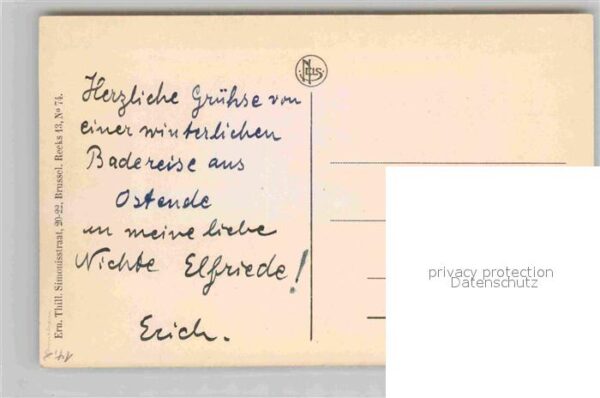 Herzliche Grühse von
einer winterlichen
Badereise aus
Ostende
an meine liebe
Nichte Elfriede!
Erich.
Ern. Thill. Simonisstraat, 20-22, Brussel. Reeks 43, No 74.
NELS
privacy protection
Datenschutz